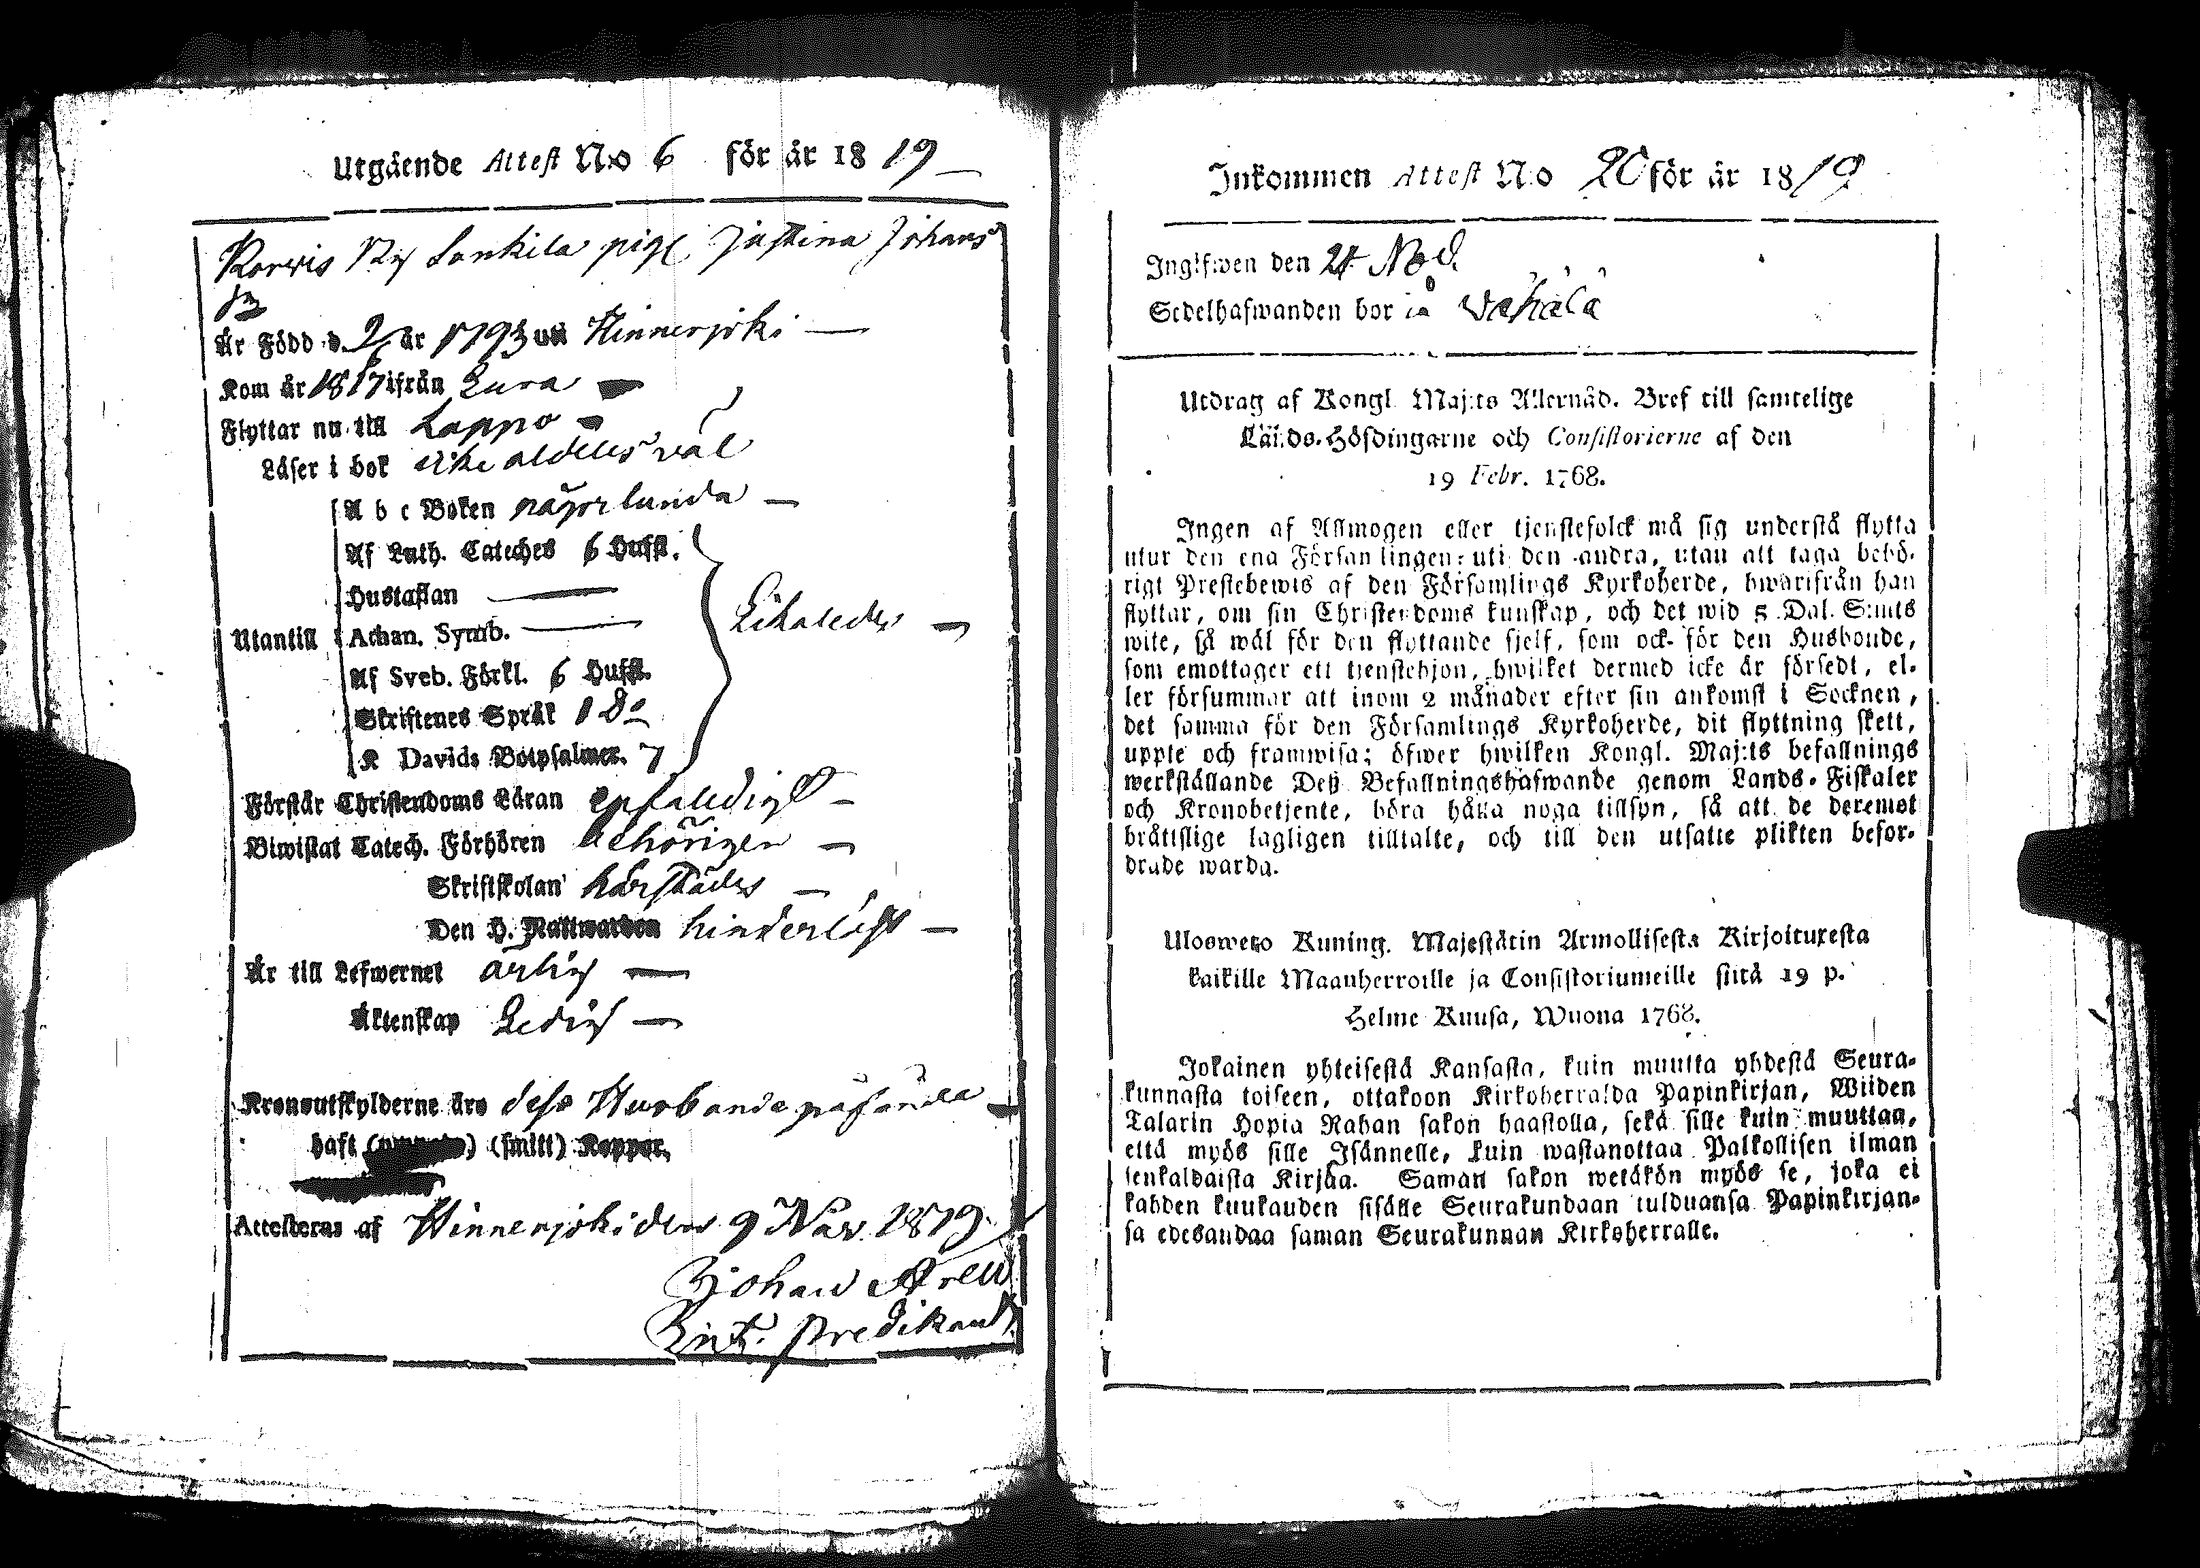 Utgående Attest No 6 för år 1819
Korwis By Lankila pig. Justina Johans
Är Född d. 2/6 år 1793 uti Hinnerjoki
Kom år 1817 ifrån Eura
Flyttar nu till Lappo
Läser i bok icke aldeles väl
A b c Boken någorlunda
Af Luth. Cateches 6 Hufst.
Hustaflan
Utantill Athan. Symb. Likaledes
Af Sveb. Förkl. 6 Hufst.
Skriftenes Språk
K Davids Botpsalmer. 7
Förstår Christendoms Läran enfaldigt
Biwistat Catech. Förhören behörigen
Skriftskolan härstädes
Den H. Nattwarden hinderlöst
Är till Lefwernet ärlig
Äktenskap Ledig
Kronoutskylderne äro dess Husbonde påförda
haft ( ) (smitt) Koppor,
Attesteras af Hinnerjoki den 9 Nov. 1819.
Johan
Predikant
Inkommen Attest No 20 för år 1819
Inglfwen den 21 Nov.
Sedelhafwanden bor på Wähälä
Utdrag af Kongl. Maj:ts Allernåd. Bref till samtelige
Länds-Höfdingarne och Consistorierne af den
19 Febr. 1768.
Ingen af Allmogen eller tjenstefolck må sig understå flytta
utur den ena Församlingen uti den andra, utan att taga behö-
rigt Prestebewis af den Församlings Kyrkoherde, hwarifrån han
flyttar, om sin Christendoms kunskap, och det wid 5 Dal. S:mts
wite, så wäl för den flyttande sjelf, som ock för den Husbonde,
som emottager ett tjenstehjon, hwilket dermed icke är försedt, el-
ler försummar att inom 2 månader efter sin ankomst i Socknen,
det samma för den Församlings Kyrkoherde, dit flyttning skett,
uppte och framwisa; öfwer hwilken Kongl. Maj:ts befallnings
werkställande Deß Befallningshafwande genom Lands-Fiskaler
och Kronobetjente, böra hålla noga tillsyn, så att de deremot
bråttslige lagligen tilltalte, och till den utsatte plikten befor-
drade warda.
Ulosweto Kuning. Majestätin Armollisesta Kirjoituxesta
kaikille Maanherroille ja Consistoriumeille siitä 19 p.
Helme Kuusa, Wuona 1768.
Jokainen yhteisestä Kansasta, kuin muutta yhdestä Seura-
kunnasta toiseen, ottakoon Kirkoherralda Papinkirjan, Wiiden
Talarin Hopia Rahan sakon haastolla, sekä sille kuin muuttaa,
että myös sille Isännelle, kuin wastanottaa Palkollisen ilman
senkaldaista Kirjaa. Saman sakon wetäkön myös se, joka ei
kahden kuukauden sisälle Seurakundaan tulduansa Papinkirjan-
sa edesandaa saman Seurakunnan Kirkoherralle.